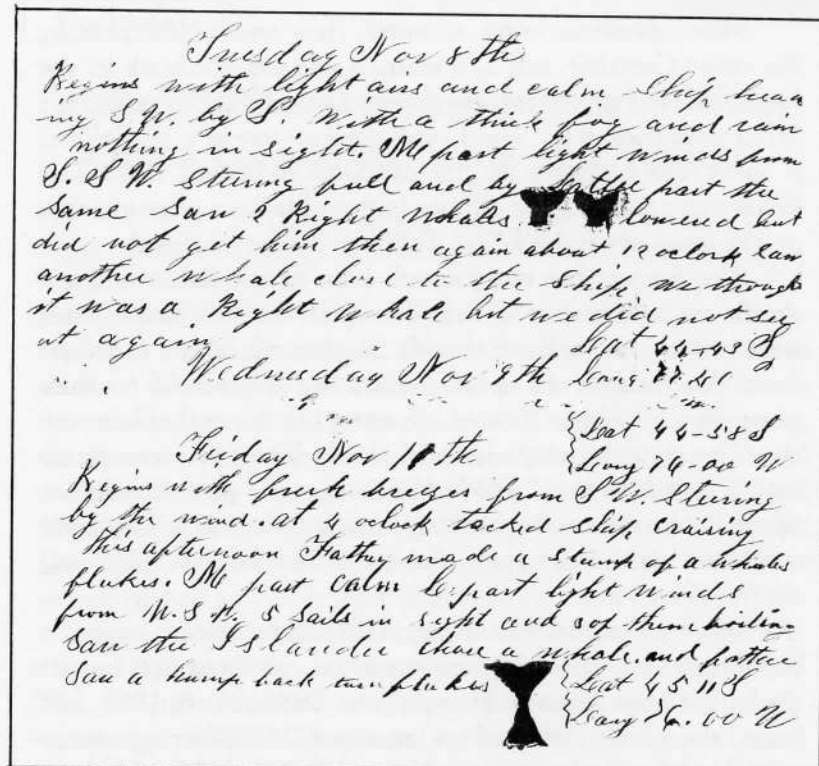 Tuesday Nov 8th
Begins with light airs and calm Ship head
ing S.W. by S. with a thick fog and rain
nothing in sight. M part light winds from
S. S W. Steering full and by Latter part the
same Saw 2 Right Whales lowered but
did not get him then again about 12 oclock saw
another whale close to the Ship we though
it was a Right Whale but we did not see
it again Lat 44-43 S
Wednesday Nov 9th Long
Lat 44-58 S
Friday Nov 11th Long 74-00 W
Begins with fresh breezes from S W. Steering
by the wind. at 4 oclock tacked ship cruising
this afternoon Father made a stump of a whales
flukes. M part calm L part light winds
from W.S.W. 5 Sails in sight and 3 of them boiling
Saw the Islander chase a whale. and father
Saw a hump back turn flukes Lat 45 11 S
Long 76.00 W